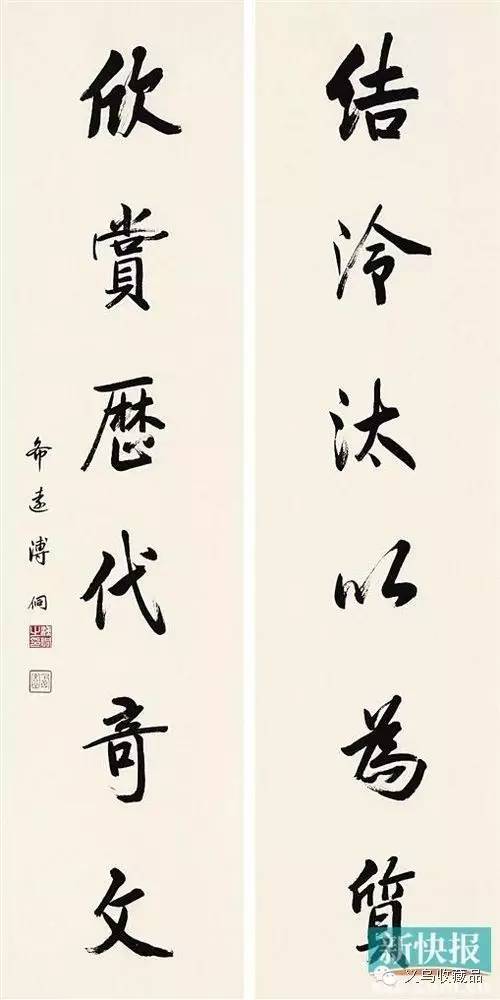 结泠汰以為質
欣賞歷代奇文
希遠溥侗
新快报
义乌收藏品